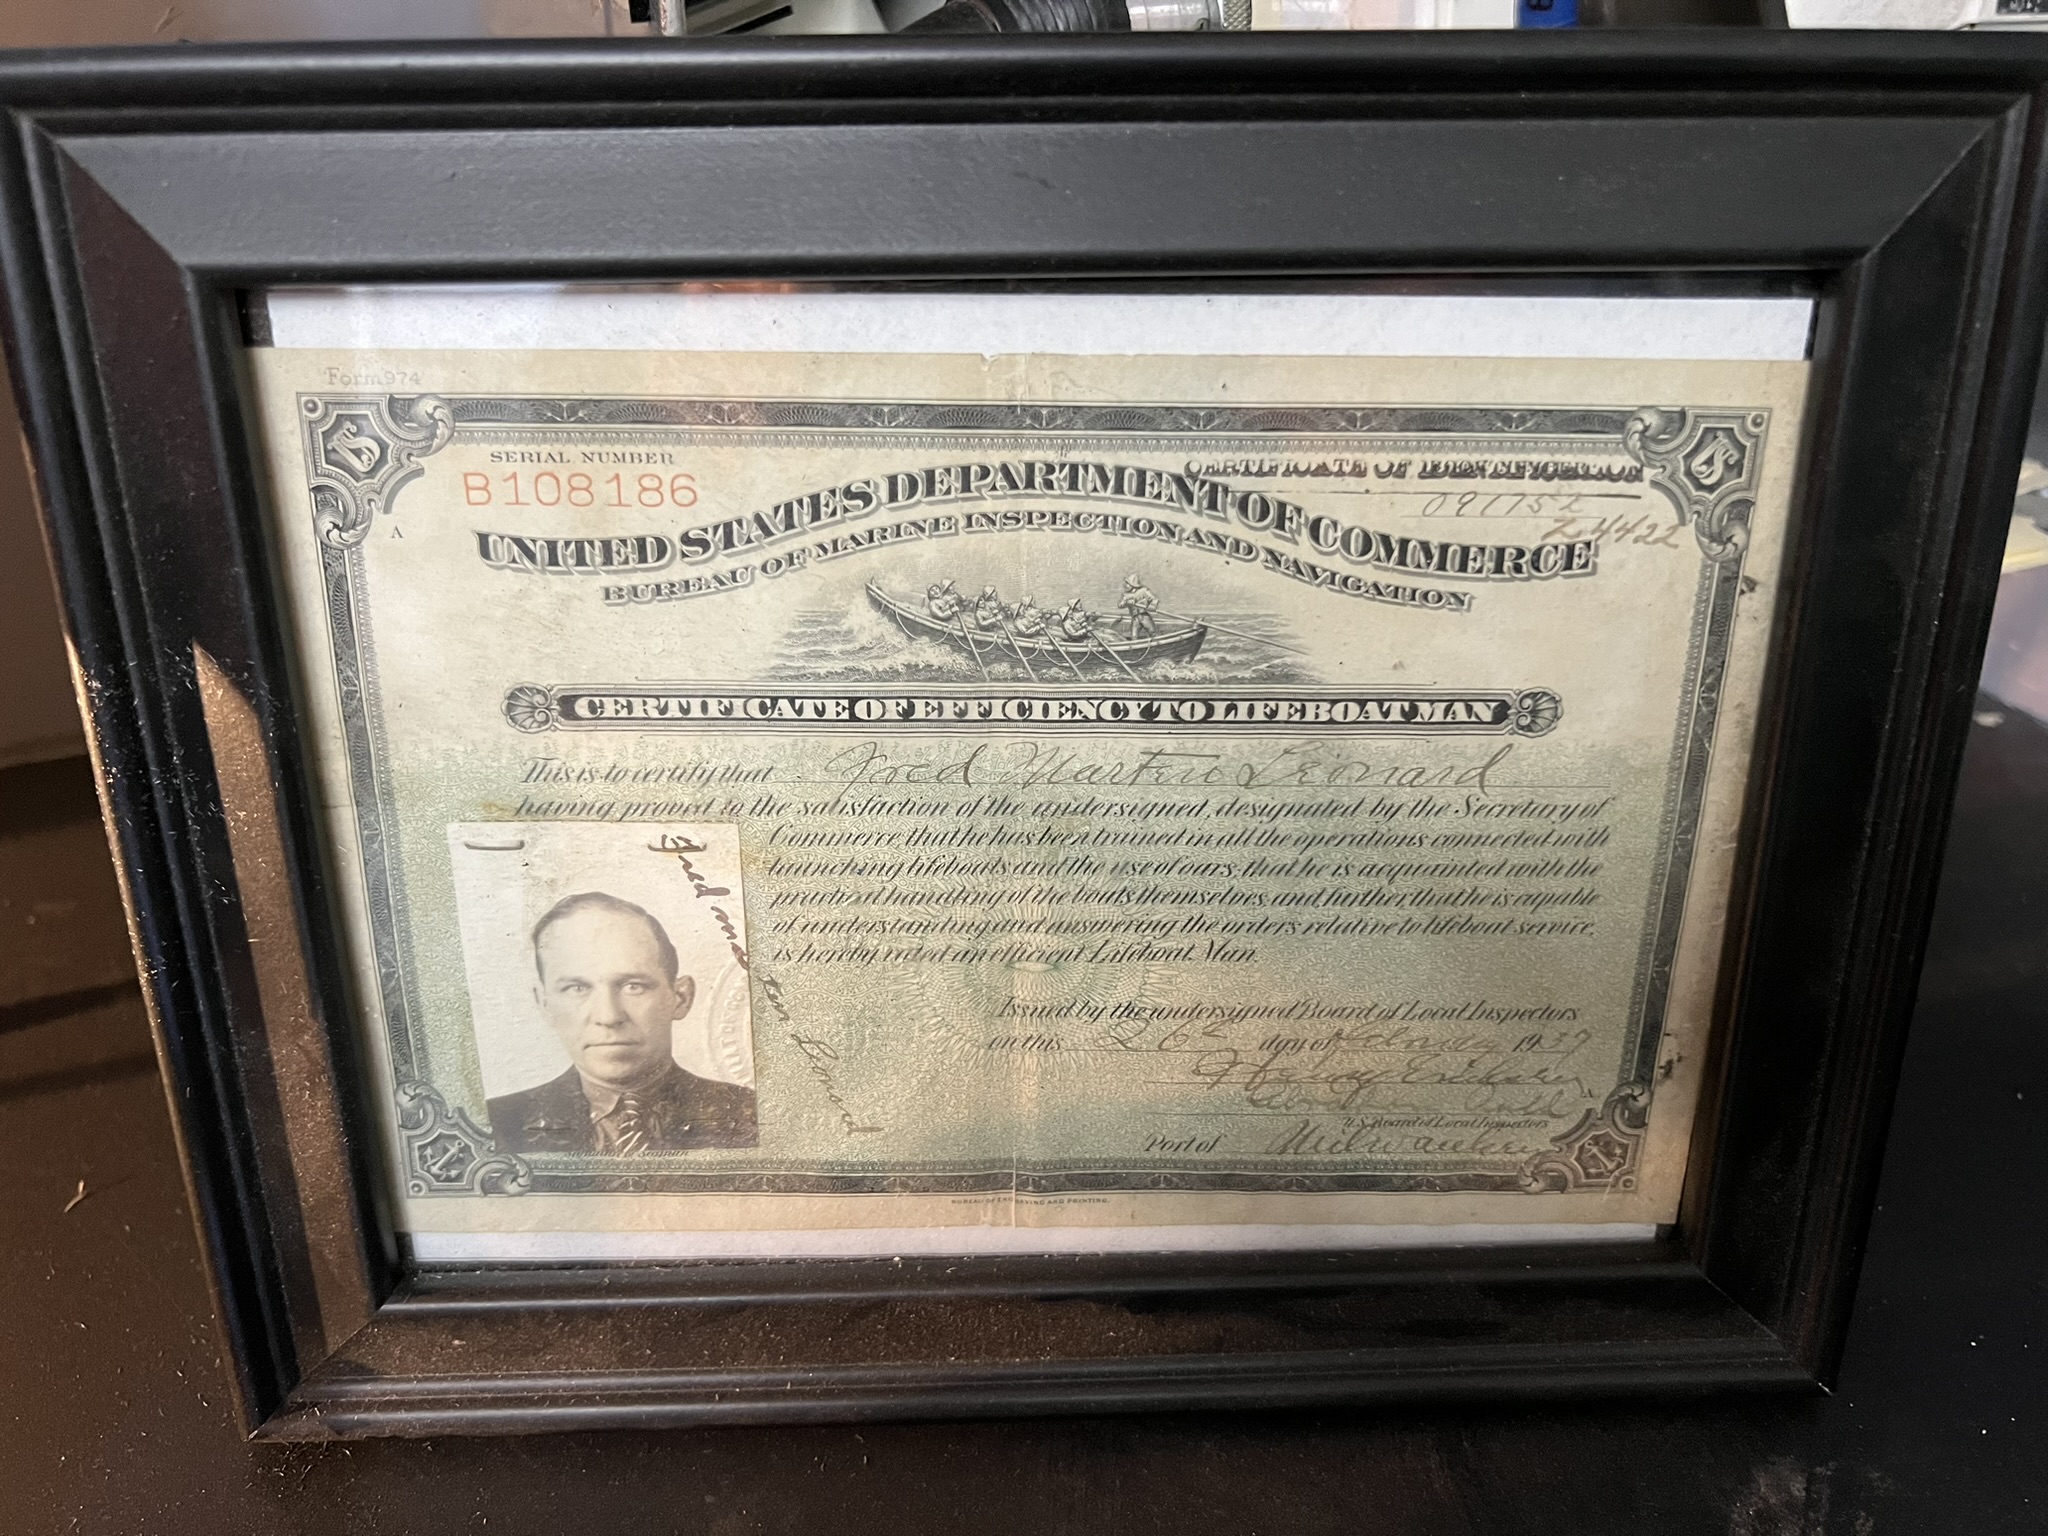 Form 974
SERIAL NUMBER
B108186
CERTIFICATE OF IDENTIFICATION
091752
Z-4422
A
UNITED STATES DEPARTMENT OF COMMERCE
BUREAU OF MARINE INSPECTION AND NAVIGATION
CERTIFICATE OF EFFICIENCY TO LIFEBOAT MAN
This is to certify that Fred Marten Leonard
having proved to the satisfaction of the undersigned, designated by the Secretary of
Commerce that he has been trained in all the operations connected with
launching lifeboats and the use of oars; that he is acquainted with the
practical handling of the boats themselves; and further that he is capable
of understanding and answering the orders relative to lifeboat service,
is hereby rated an efficient Lifeboat Man.
Fred Marten Leonard
Issued by the undersigned Board of Local Inspectors
on this 26 day of February 1937
Henry Erichsen
U.S. Board of Local Inspectors
Port of Milwaukee
Signature of Seaman
BUREAU OF ENGRAVING AND PRINTING.